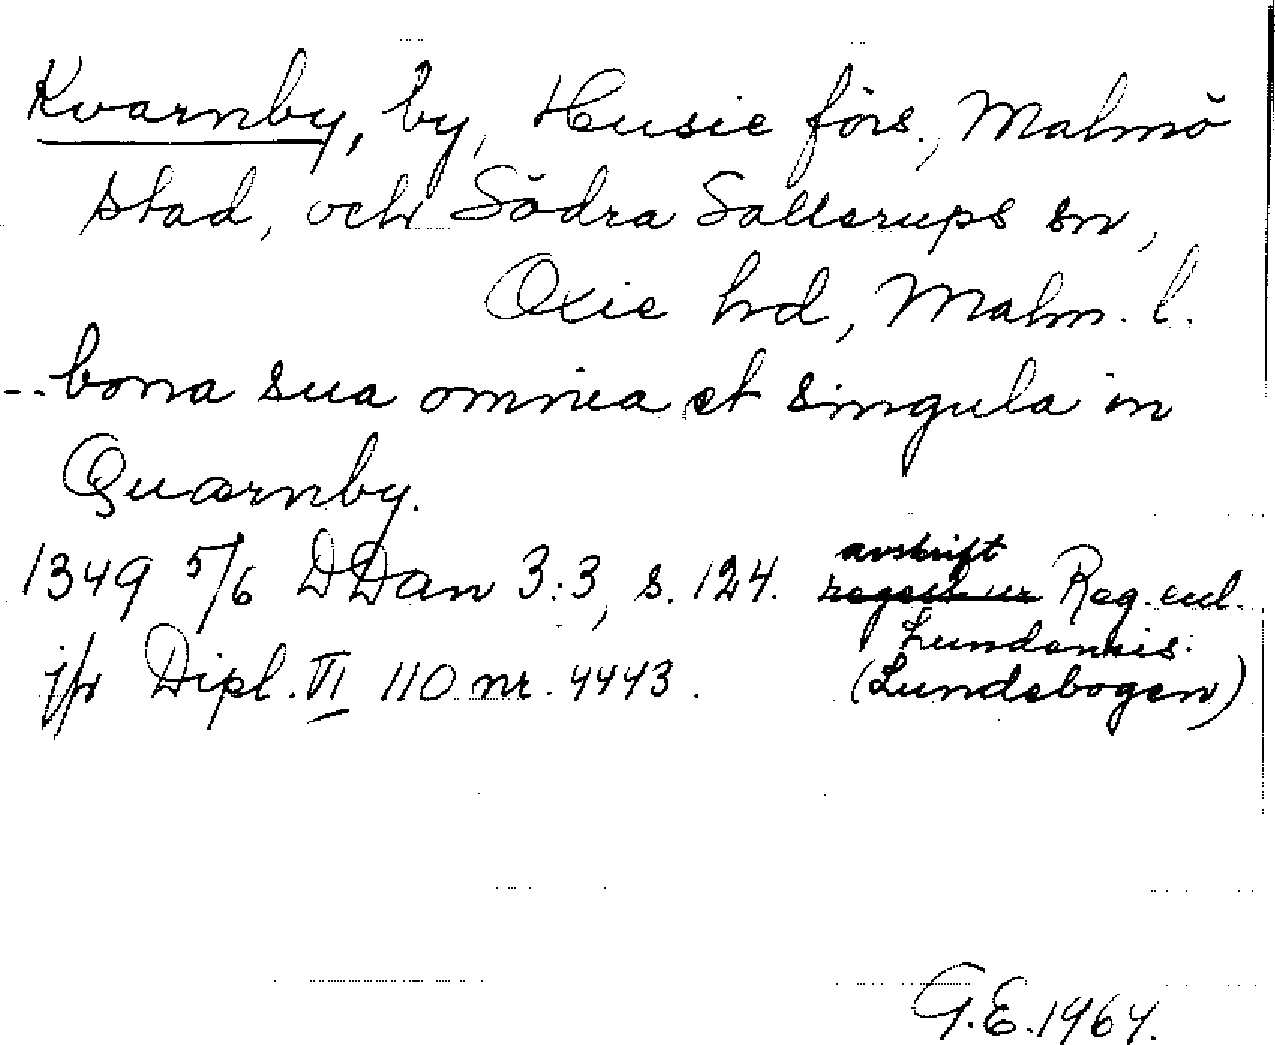 Kvarnby, by, Husie förs., Malmö
stad, och Södra Sallerups sn,
Oxie hd, Malm. l.
-- bona sua omnia et singula in
Quærnby.
1349 5/6 DDan 3:3, s. 124. avskrift Reg. eccl.
Lundensis.
jfr Dipl. VI 110 nr. 4443. (Lundebogen)
G.E. 1964.